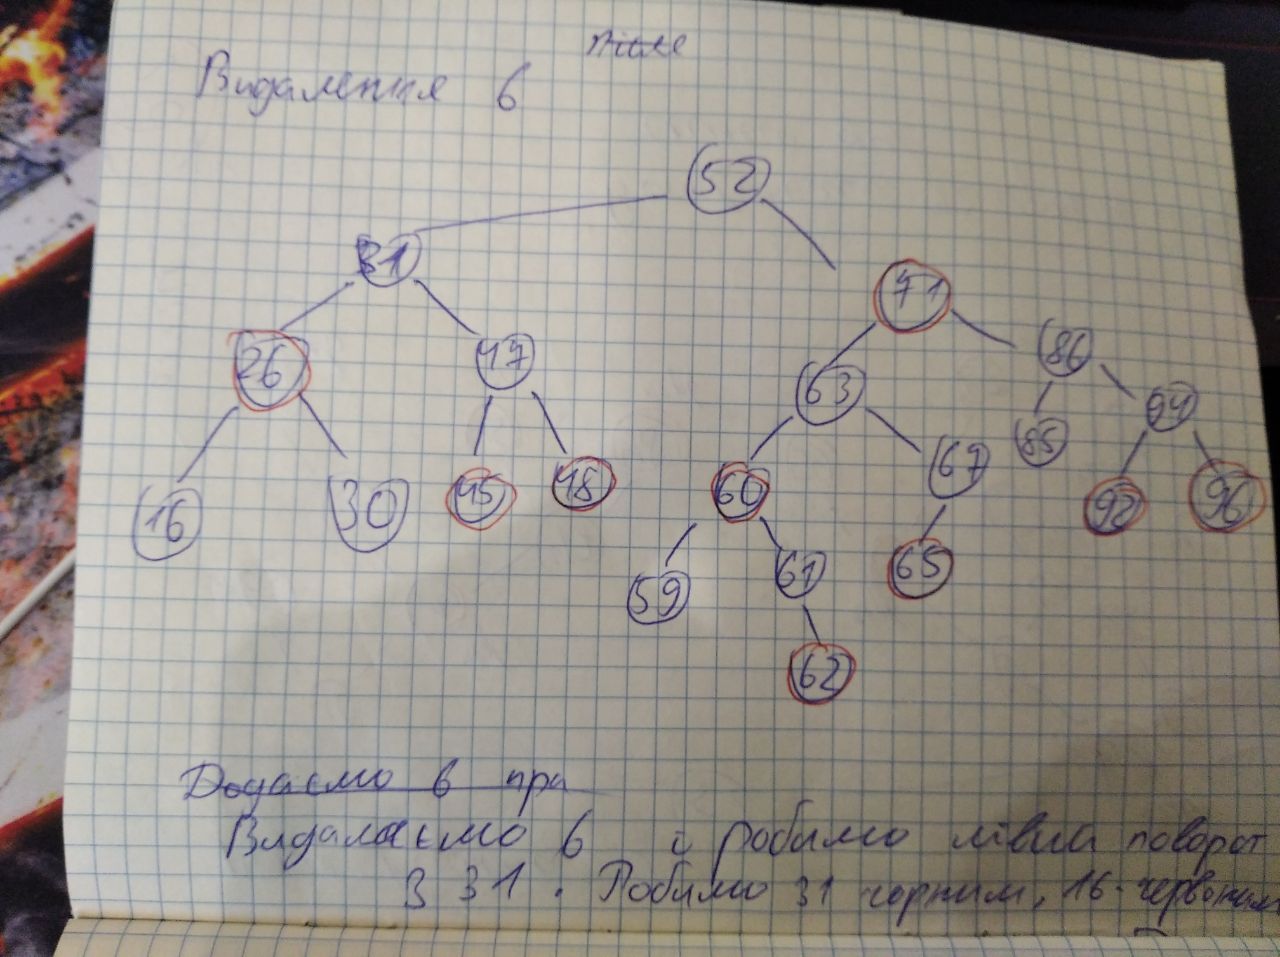 після
Видалення 6
52
31
71
26 47 63 86
16 30 45 48 60 67 85 94
59 61 65 92 96
62
Додаємо 6 при
Видалаємо 6 і робимо лівий поворот
В 31. Робимо 31 чорним, 16 - червоним